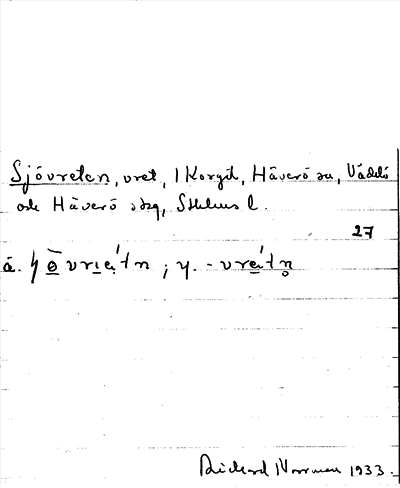 Sjövreten, vret, 1 Korgil, Häverö sn, Väddö
och Häverö skg, Sthlms l.
27
ä. ; y. -
Rickard Norrman 1933.